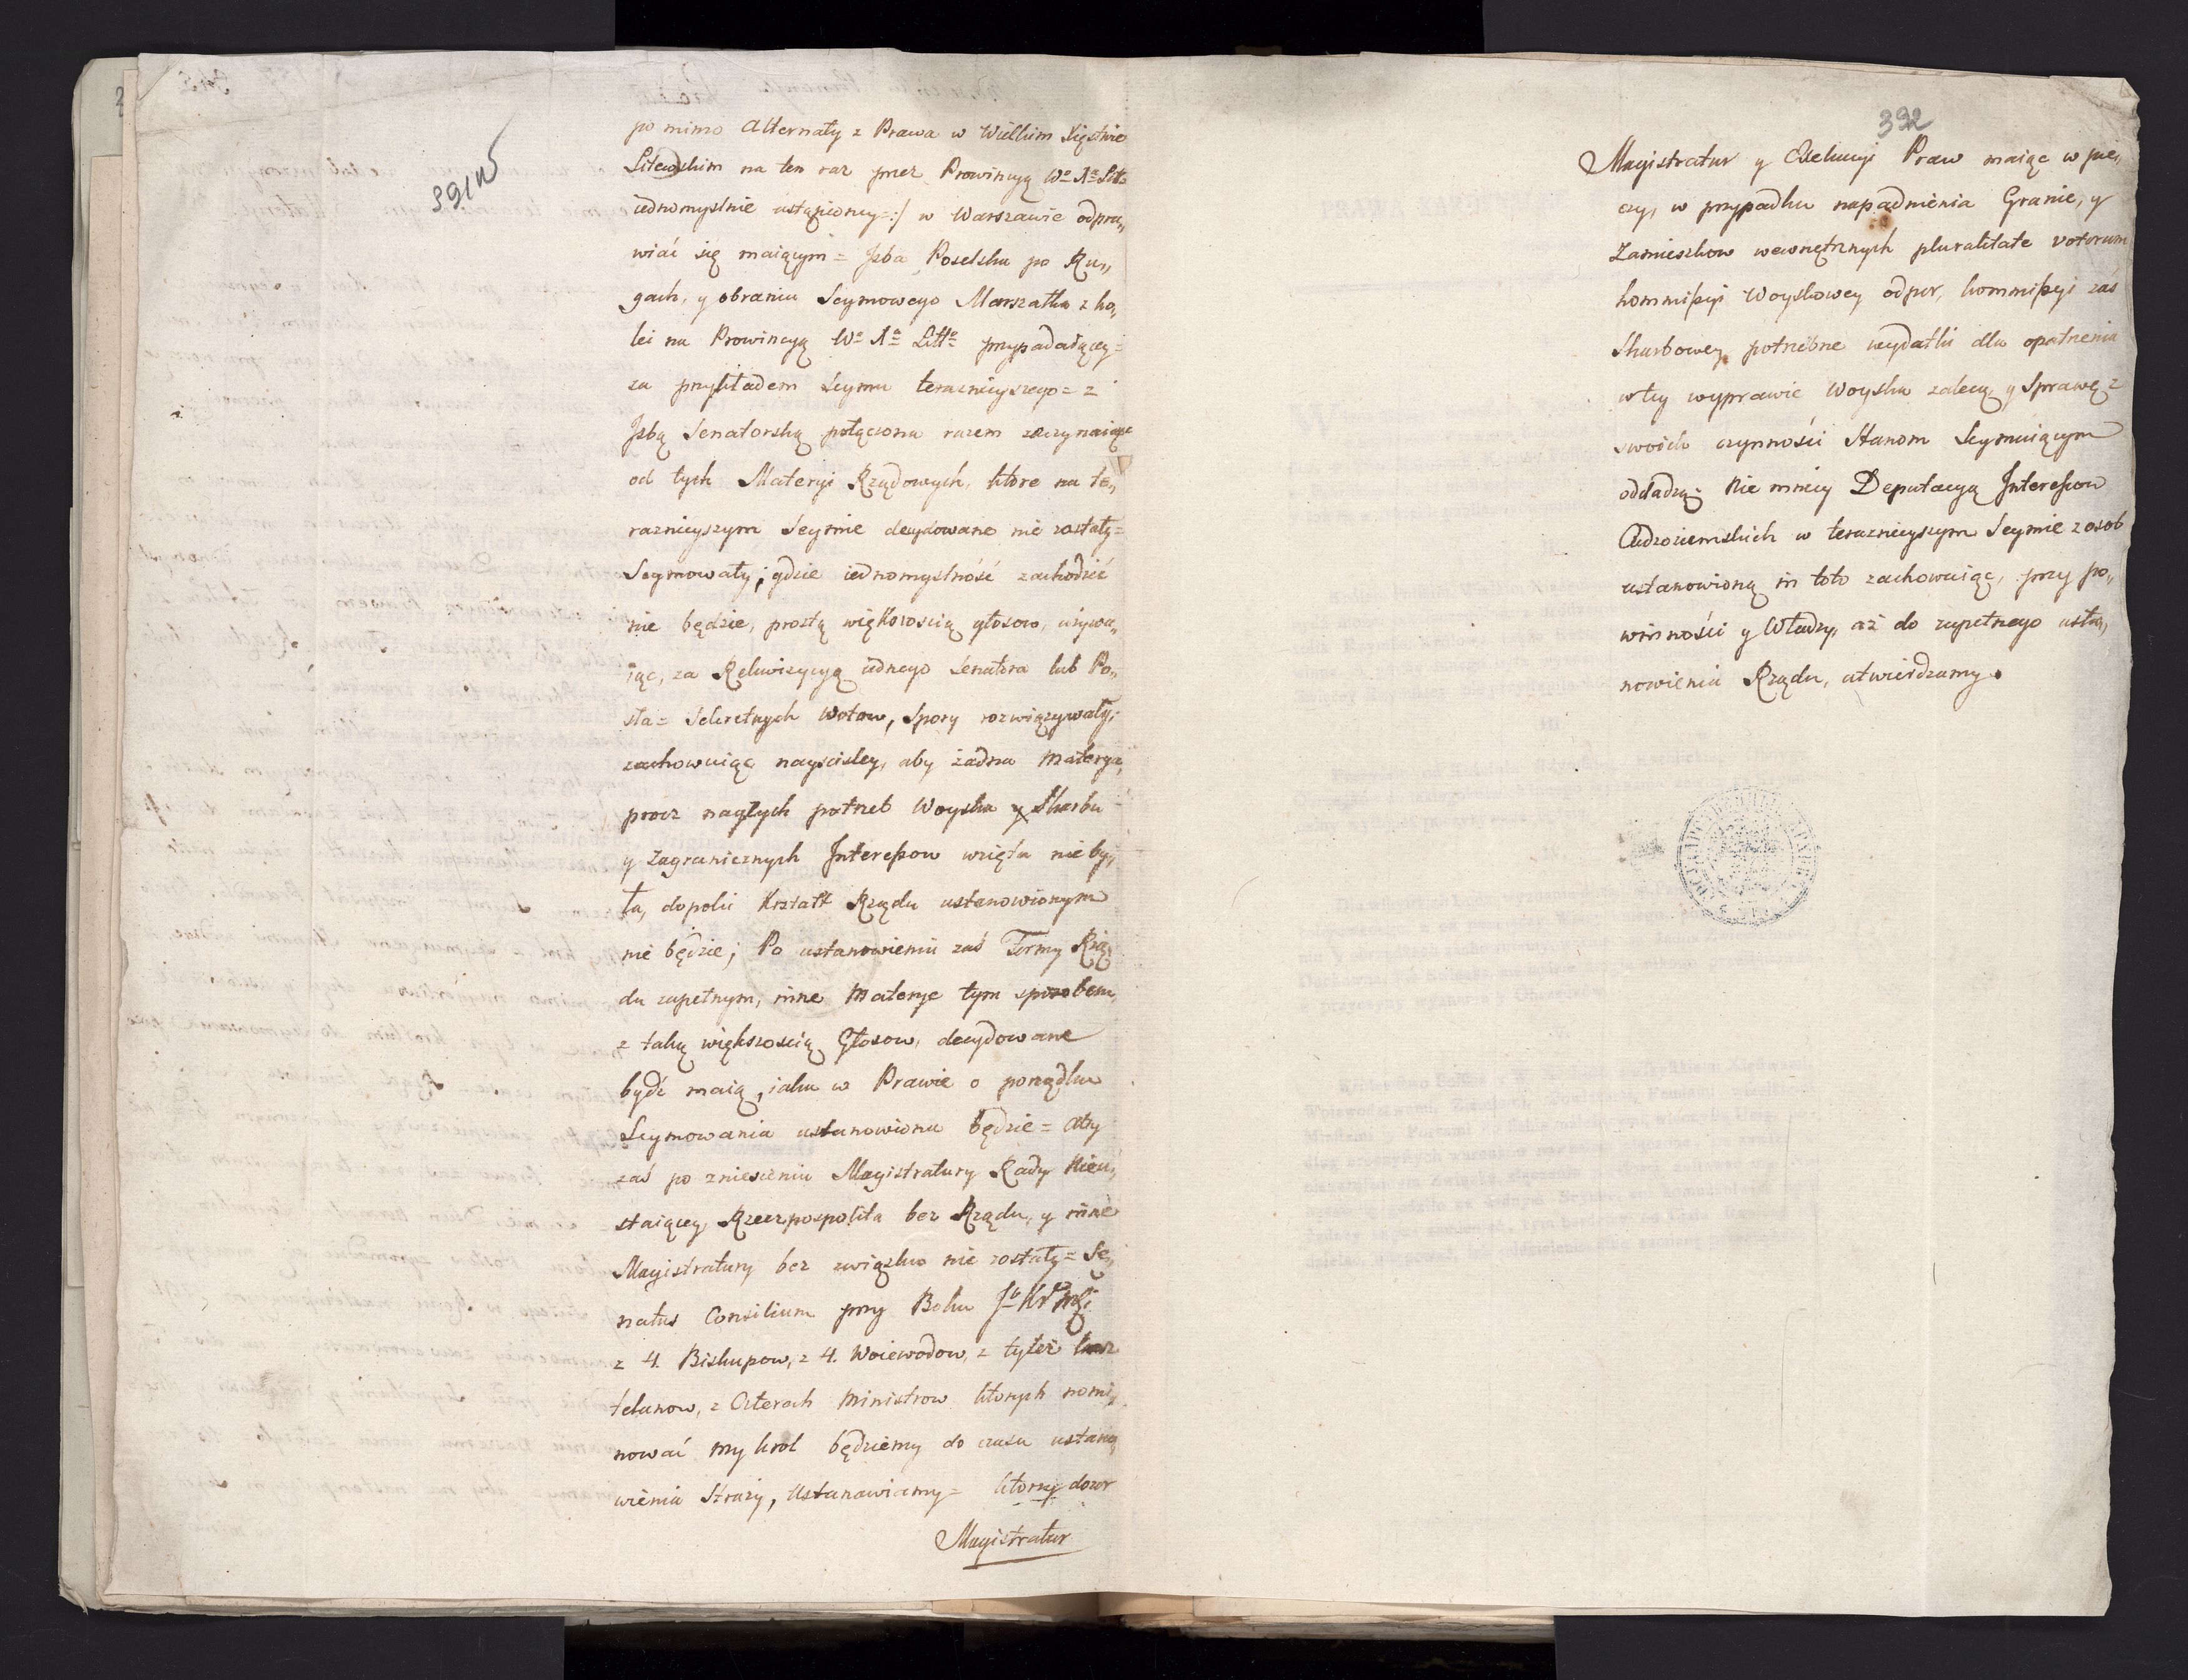 391v
po mimo Alternaty z Prawa w Wielkim Xięstwie
Litewskim na ten raz przez Prowincyą Wo Xa Litt:
iednomyslnie ustąpioney=:/ w Warszawie odpra„
wiać się maiącym = Jzba Poselska po Ru„
gach, y obraniu Seymowego Marszałka z ko„
lei na Prowincyą Wo Xa Litto przypadaiącey=
za przykładem Seymu teraznieyszego = z
Jzbą Senatorską połączona razem zaczynaiąc
od tych Materyi Rządowych, ktore na te„
raznieyszym Seymie decydowane nie zostały=
Seymowały; gdzie iednomyslność zachodzić
nie będzie, prostą większością głosow, używa„
iąc, za Rekwizycyą iednego Senatora lub Po„
sła = Sekretnych Wotow, Spory rozwiązywały;
zachowuiąc nayscisley, aby żadna Materya,
procz nagłych potrzeb Woyska y Skarbu
y Zagranicznych Interessow wzięta nie by„
ła, dopoki Kształt Rządu ustanowionym
nie będzie; Po ustanowieniu zaś Formy Rzą„
du zupełnym, inne Materye tym sposobem,
z taką większoscią Głosow, decydowane
bydź maią, iaka w Prawie o porządku
Seymowania ustanowiona będzie = Aby
zaś po zniesieniu Magistratury Rady Nieu„
staiącey, Rzeczpospolita bez Rządu, y inne
Magistratury bez związku nie zostały = Se„
natus Consilium przy Boku
z 4. Biskupow, z 4. Woiewodow, z tyleż Kasz
telanow, z Czterech Ministrow ktorych nomi„
nować my Krol będziemy do czasu ustano„
wienia Straży, Ustanawiamy = ktorzy dozor
Magistratur
392
Magistratur y Exekucyi Praw maiąc w pie„
czy, w przypadku napadnienia Granic, y
Zamieszkow wewnętrznych pluralitate votorum
kommissyi Woyskowey odpor, kommissyi zaś
Skarbowey potrzebne wydatki dla opatrzenia
w tey wyprawie Woyska zalecą, y Sprawę z
swoich czynności Stanom Seymuiącym
oddadzą. Nie mniey Deputacyą Interessow
Cudzoziemskich w teraznieyszym Seymie z osob
ustanowioną in toto zachowuiąc, przy po„
winności y Władzy, aż do zupełnego usta„
nowienia Rządu, utwierdzamy.